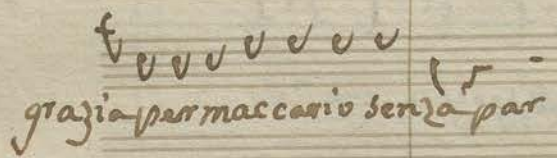 grazia per maccario senza par